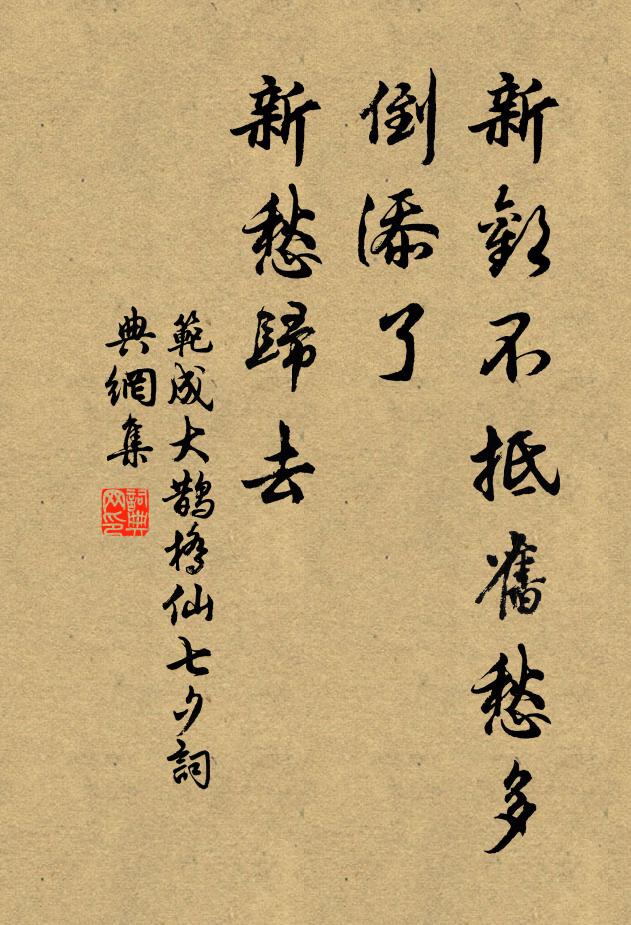 新歡不抵舊愁多
倒添了
新愁歸去
範成大鵲橋仙七夕詞
典網集
詞典
网印